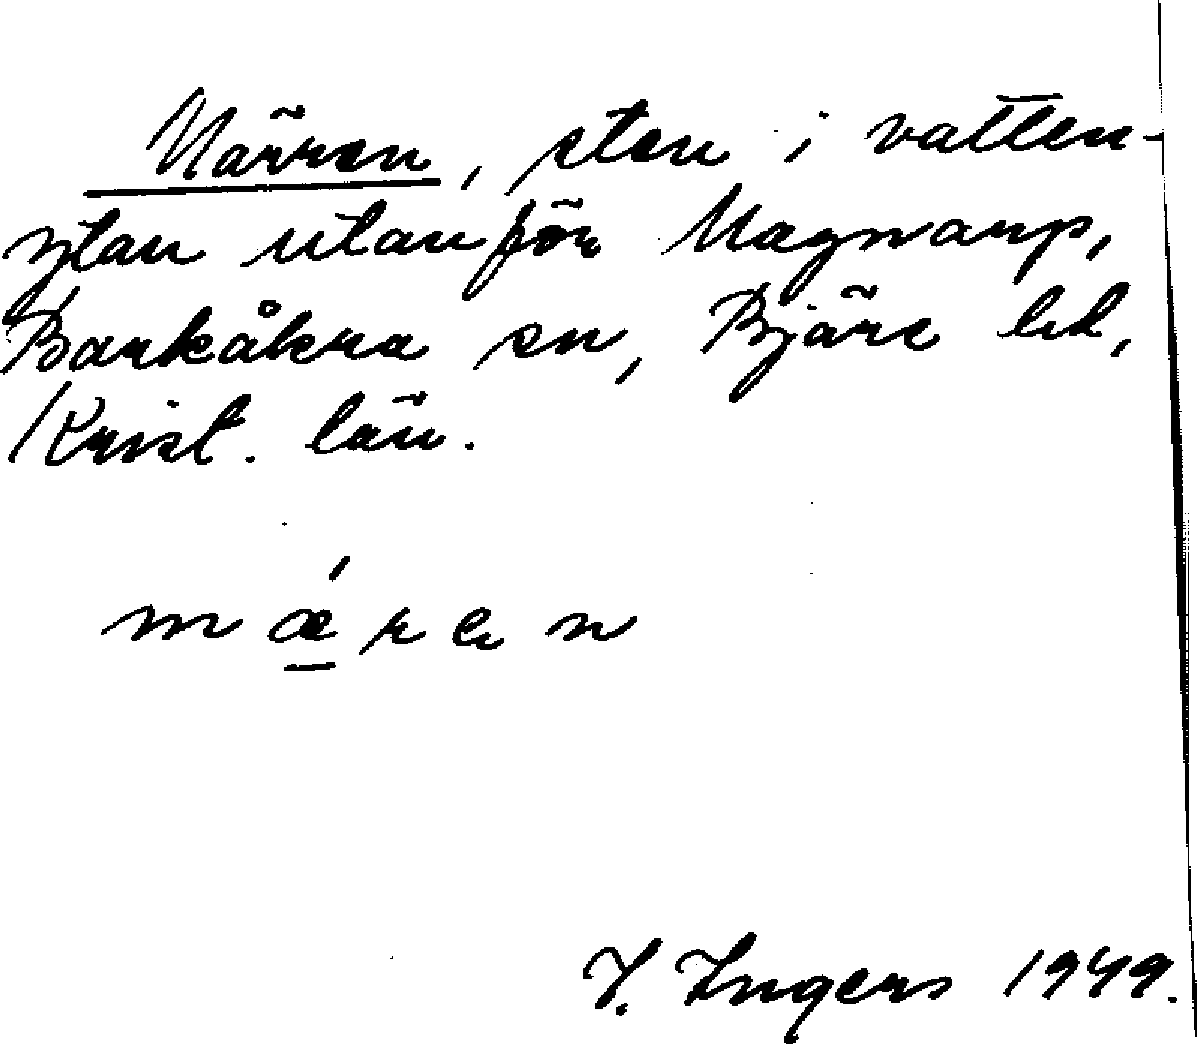 Märren, sten i vatten-
ytan utanför Magnarp,
Barkåkra sn, Bjäre hd,
Krist. län.
mǽ̱ren
I. Ingers 1949.